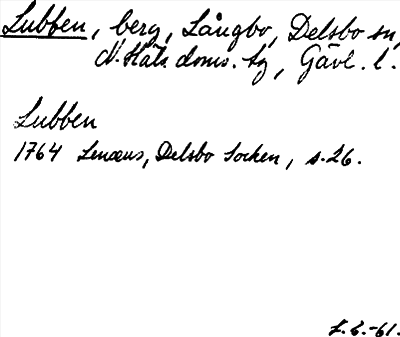 Lubben, berg, Långbo, Delsbo sn,
N. Häls. doms. tg, Gävl. l.
Lubben
1764 Lenæus, Delsbo Socken, s. 26.